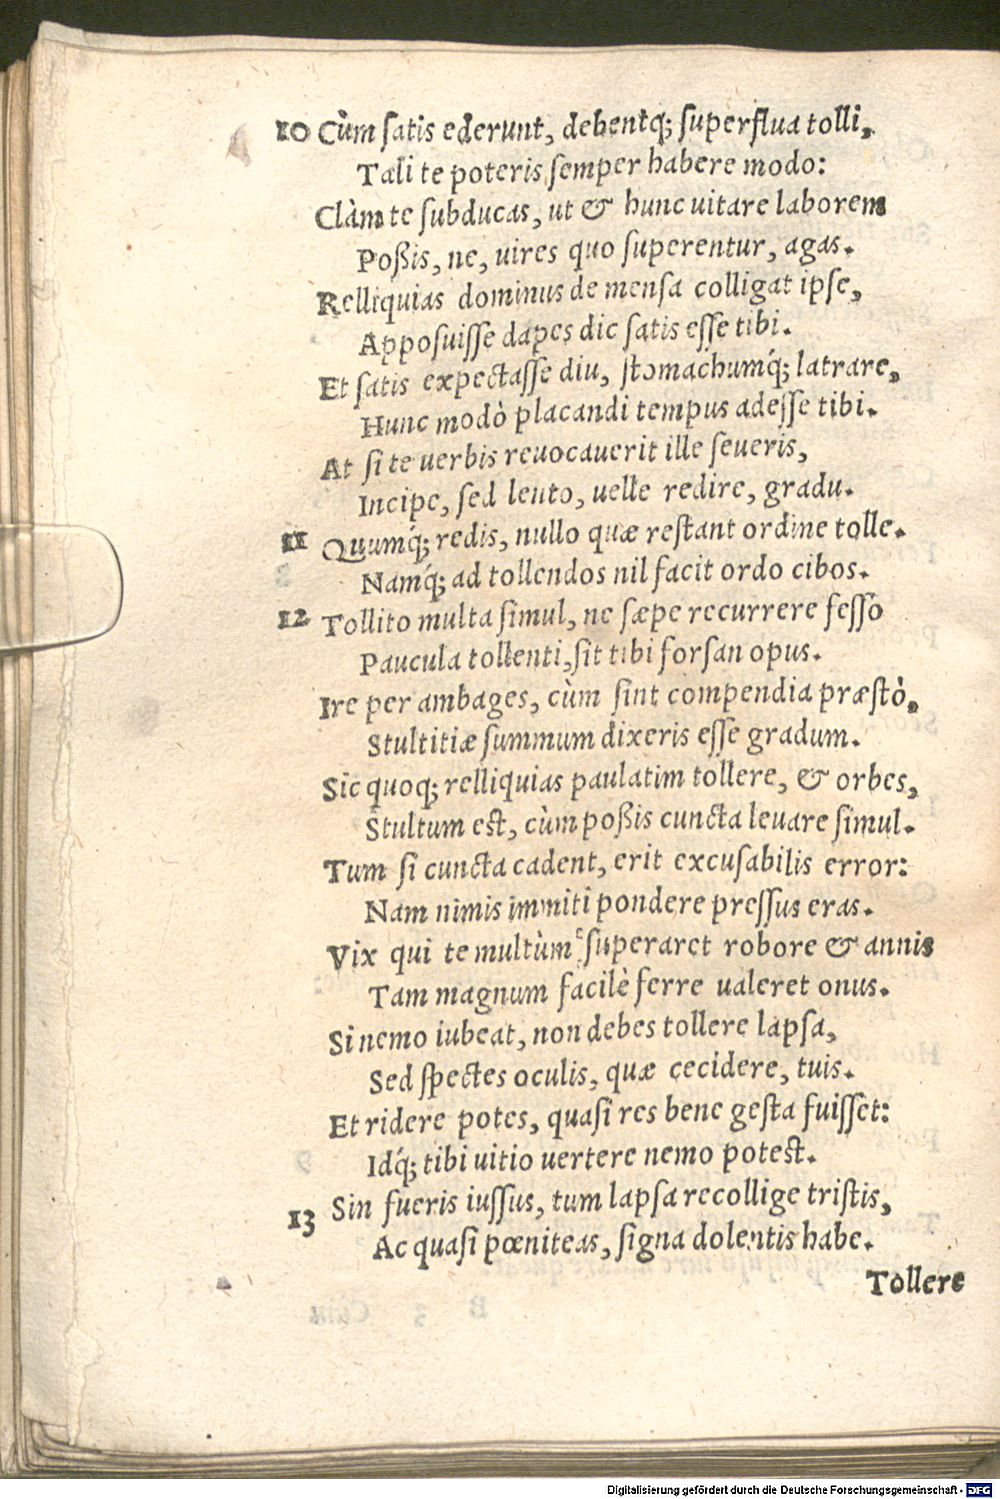 10 Cùm ſatis ederunt, debentq́; ſuperflua tolli,
Tali te poteris ſemper habere modo:
Clàm te ſubducas, ut & hunc uitare laborem
Poßis, ne, uires quo ſuperentur, agas.
Relliquias dominus de menſa colligat ipſe,
Appoſuiſſe dapes dic ſatis eſſe tibi.
Et ſatis expectaſſe diu, ſtomachumq́; latrare,
Hunc modò placandi tempus adeſſe tibi.
At ſi te uerbis reuocauerit ille ſeueris,
Incipe, ſed lento, uelle redire, gradu.
11 Quumq́; redis, nullo quæ reſtant ordine tolle.
Namq́; ad tollendos nil facit ordo cibos.
12 Tollito multa ſimul, ne ſæpe recurrere feſſo
Paucula tollenti, ſit tibi forſan opus.
Ire per ambages, cùm ſint compendia præſtò,
Stultitiæ ſummum dixeris eſſe gradum.
Sic quoq; relliquias paulatim tollere, & orbes,
Stultum eſt, cùm poßis cuncta leuare ſimul.
Tum ſi cuncta cadent, erit excuſabilis error:
Nam nimis immiti pondere preſſus eras.
Vix qui te multùm ſuperaret robore & annis
Tam magnum facilè ferre ualeret onus.
Si nemo iubeat, non debes tollere lapſa,
Sed ſpectes oculis, quæ cecidere, tuis.
Et ridere potes, quaſi res bene geſta fuiſſet:
Idq́; tibi uitio uertere nemo poteſt.
13 Sin fueris iuſſus, tum lapſa recollige triſtis,
Ac quaſi pœniteas, ſigna dolentis habe.
Tollere
Digitalisierung gefördert durch die Deutsche Forschungsgemeinschaft - DFG